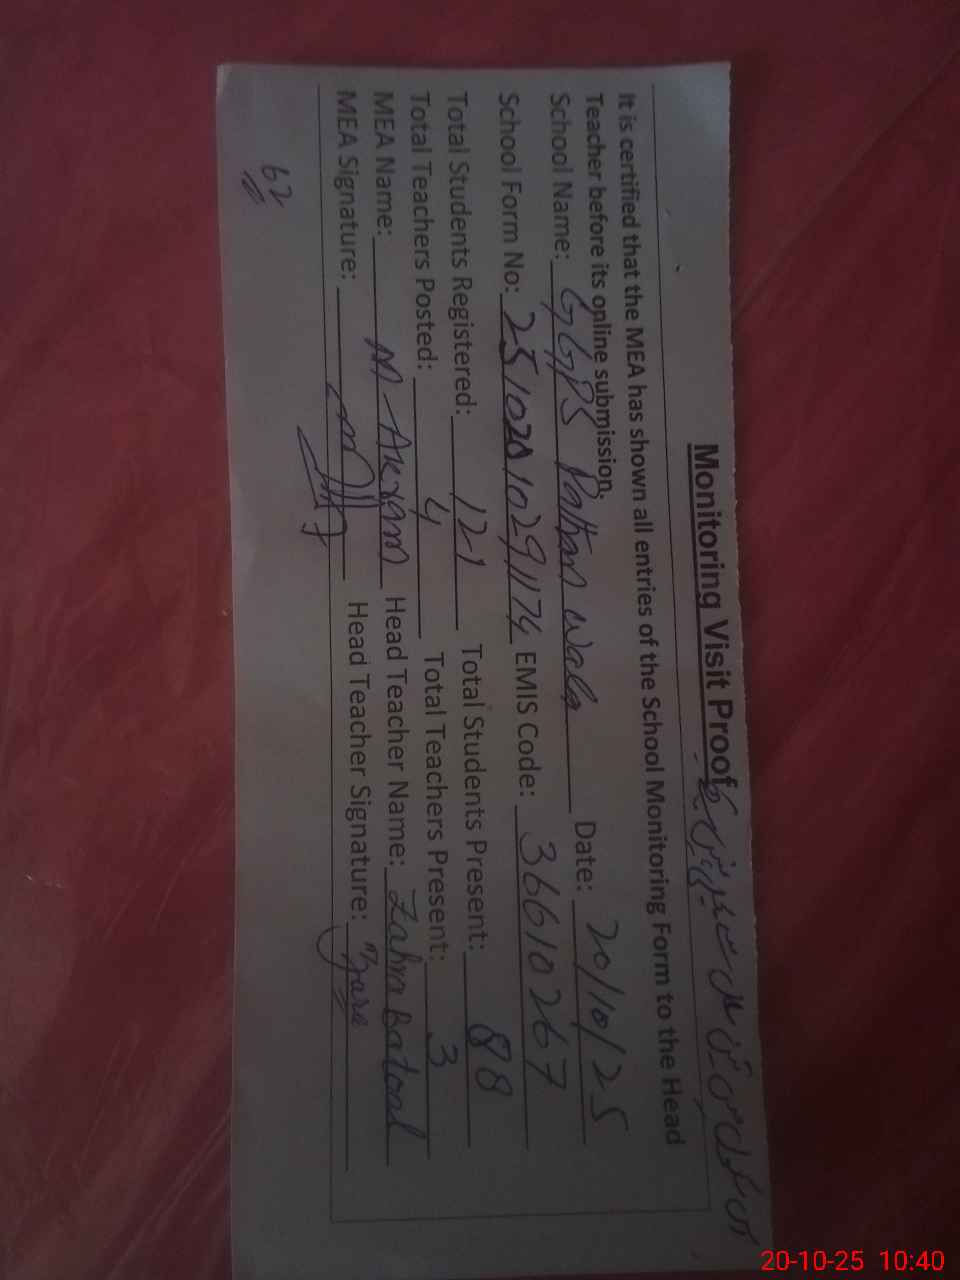 Monitoring Visit Proof
It is certified that the MEA has shown all entries of the School Monitoring Form to the Head
Teacher before its online submission.
School Name: GGPS Pathan wala Date: 20/10/25
School Form No: EMIS Code: 36610267
Total Students Registered: 121 Total Students Present: 88
Total Teachers Posted: 4 Total Teachers Present: 3
MEA Name: M. Akram Head Teacher Name: Zahra Batool
MEA Signature: Head Teacher Signature: Zara
62
20-10-25 10:40